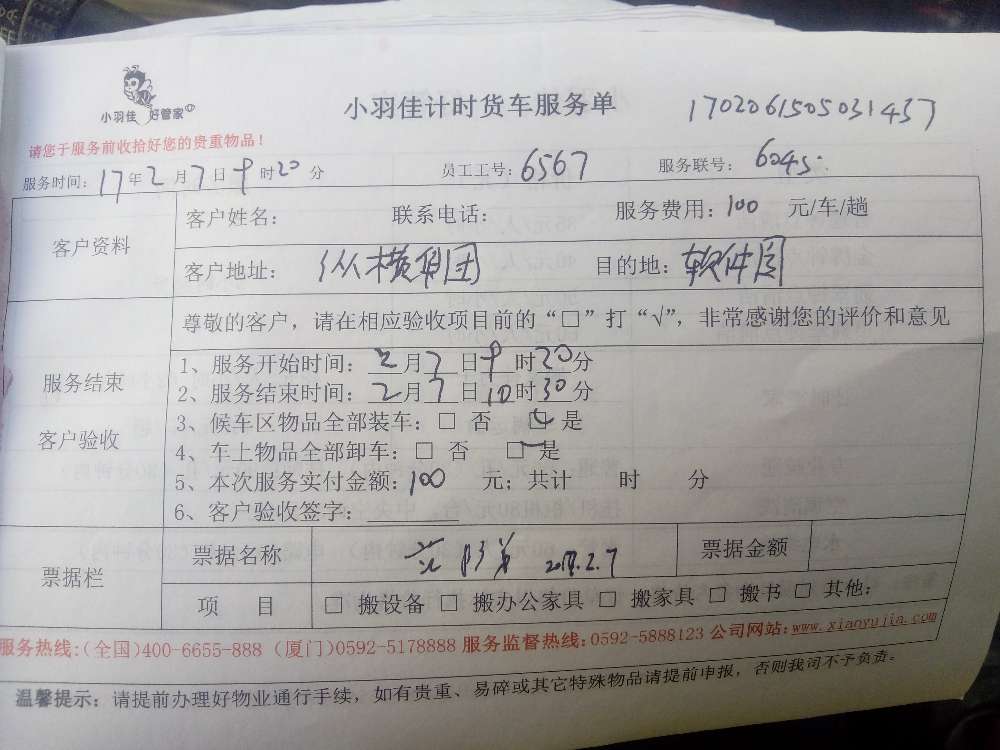 小羽佳 好管家
小羽佳计时货车服务单 1702061505031437
请您于服务前收拾好您的贵重物品！
服务时间：17年2月7日9时20分 员工工号：6567 服务联号：6045
客户资料
客户姓名： 联系电话： 服务费用：100 元/车/趟
客户地址：纵横集团 目的地：软件园
服务结束
客户验收
尊敬的客户，请在相应验收项目前的“□”打“√”，非常感谢您的评价和意见
1、服务开始时间：2月7日9时20分
2、服务结束时间：2月7日10时30分
3、候车区物品全部装车：□ 否 □ 是
4、车上物品全部卸车：□ 否 □ 是
5、本次服务实付金额：100 元；共计 时 分
6、客户验收签字：
票据栏
票据名称 2017.2.7 票据金额
项 目 □ 搬设备 □ 搬办公家具 □ 搬家具 □ 搬书 □ 其他：
服务热线：(全国)400-6655-888 (厦门)0592-5178888 服务监督热线：0592-5888123 公司网站：www.xiaoyujia.com
温馨提示：请提前办理好物业通行手续，如有贵重、易碎或其它特殊物品请提前申报，否则我司不予负责。